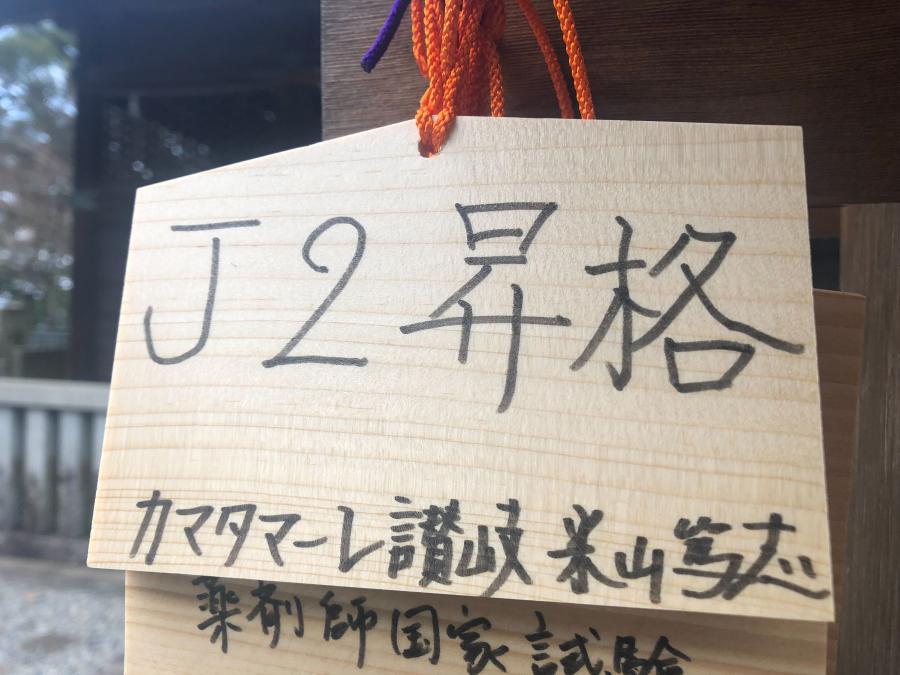 J2昇格
カマタマーレ讃岐 米山篤志
薬剤師国家試験